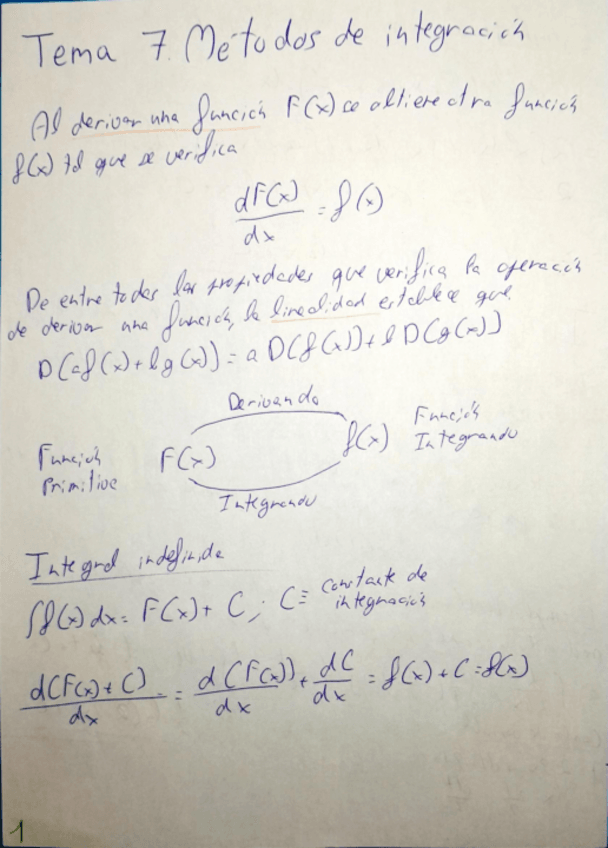 Tema 7. Métodos de integración
Al derivar una función F(x) se obtiene otra función
f(x) tal que se verifica
dF(x)/dx = f(x)
De entre todas las propiedades que verifica la operación
de derivar una función, la linealidad establece que
D(af(x)+bg(x)) = a D(f(x))+b D(g(x))
Derivando
Función Primitiva F(x) f(x) Función Integrando
Integrando
Integral indefinida
∫f(x)dx = F(x)+C; C≡ constante de integración
d(F(x)+C)/dx = d(F(x))/dx + dC/dx = f(x)+C=f(x)
1